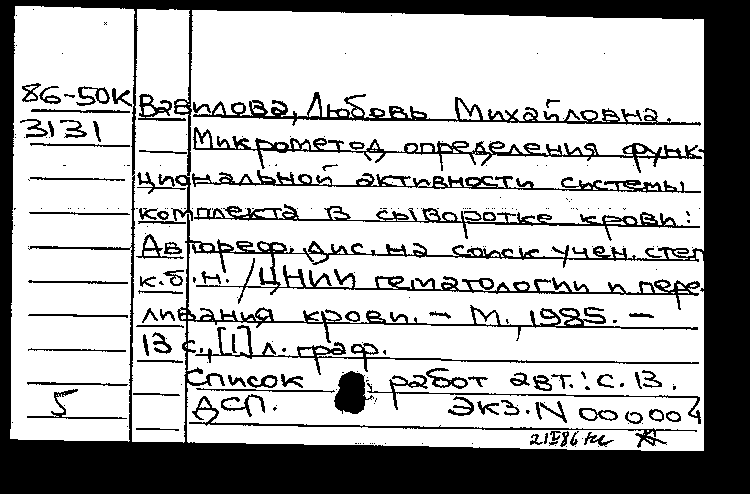 86-50К Вавилова, Любовь Михайловна.
3131 Микрометод определения функ-
циональной активности системы
комплекта в сыворотке крови:
Автореф. дис. на соиск. учен. степ
к.б.н. / ЦНИИ гематологии и пере-
ливания крови. – М., 1985. –
13 с., [1] л. граф.
Список работ авт.: с. 13.
5 ДСП. Экз. N 000004